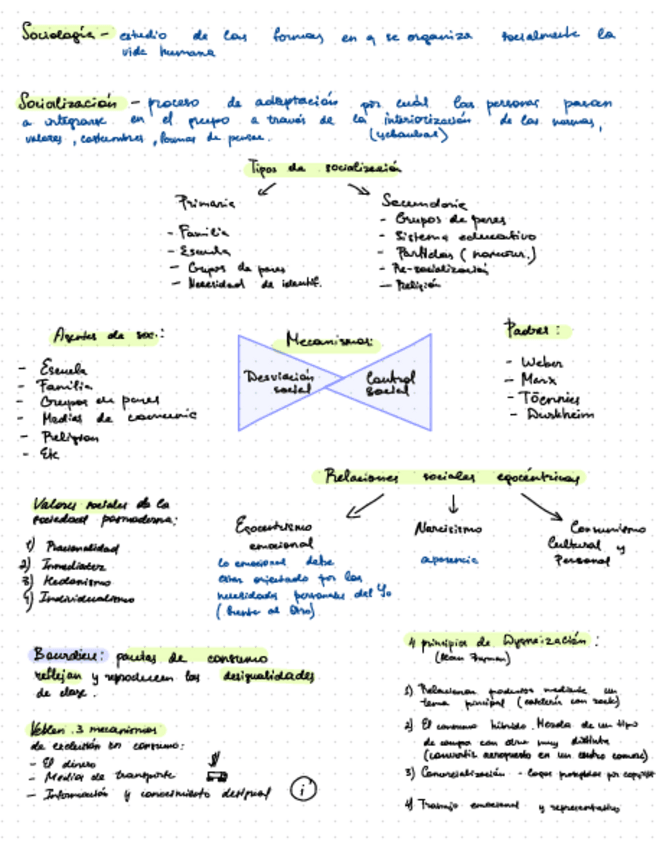 Sociología - estudio de las formas en q se organiza socialmente la
vida humana
Socialización - proceso de adaptación por cuál las personas pasan
a integrarse en el grupo a través de la interiorización de las normas,
valores, costumbres, formas de pensar.
Tipos de socialización
Primaria
- Familia
- Escuela
- Grupos de pares
- Necesidad de identif.
Secundaria
- Grupos de pares
- Sistema educativo
- Partidos
- Re-socialización
- Religión
Agentes de soc.:
- Escuela
- Familia
- Grupos de pares
- Medios de comunic
- Religion
- Etc
Mecanismos:
Desviación
social
Control
social
Padres:
- Weber
- Marx
- Töennies
- Durkheim
Relaciones sociales egocéntricas
Egocentrismo
emocional
lo emocional debe
estar orientado por las
necesidades personales del Yo
(frente al Otro)
Narcisismo
apariencia
Consumismo
Cultural y
Personal
Valores sociales de la
sociedad posmoderna:
1) Racionalidad
2) Inmediatez
3) Hedonismo
4) Individualismo
Bourdieu: pautas de consumo
reflejan y reproducen las desigualdades
de clase.
Veblen. 3 mecanismos
de exclusión en consumo:
- El dinero
- Medios de transporte
- Información y conocimiento desigual
i
4 principios de Dysneización:
1) Relacionan productos mediante un
tema principal
2) El consumo híbrido. Mezcla de un tipo
de compra con otro muy distinto
(convertir aeropuerto en un centro comerc)
3) Comercialización - Logos protegidos por copyright
4) Trabajo emocional y representativo